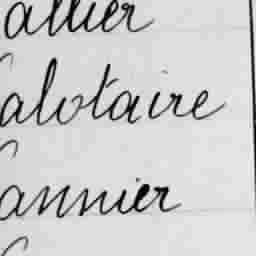 allier
alotaire
annier